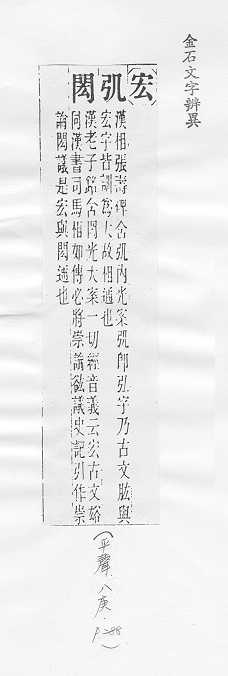 金石文字辨異
宏 𢎞 閎
漢相張壽碑含𢎞內光案𢎞卽弘字乃古文肱與
宏字皆訓爲大故相通也
漢老子銘含閎光大案一切經音義云宏古文
同漢書司馬相如傳必將崇論谹議史記引作崇
論閎議是宏與閎通也
(平聲.八庚.p288)